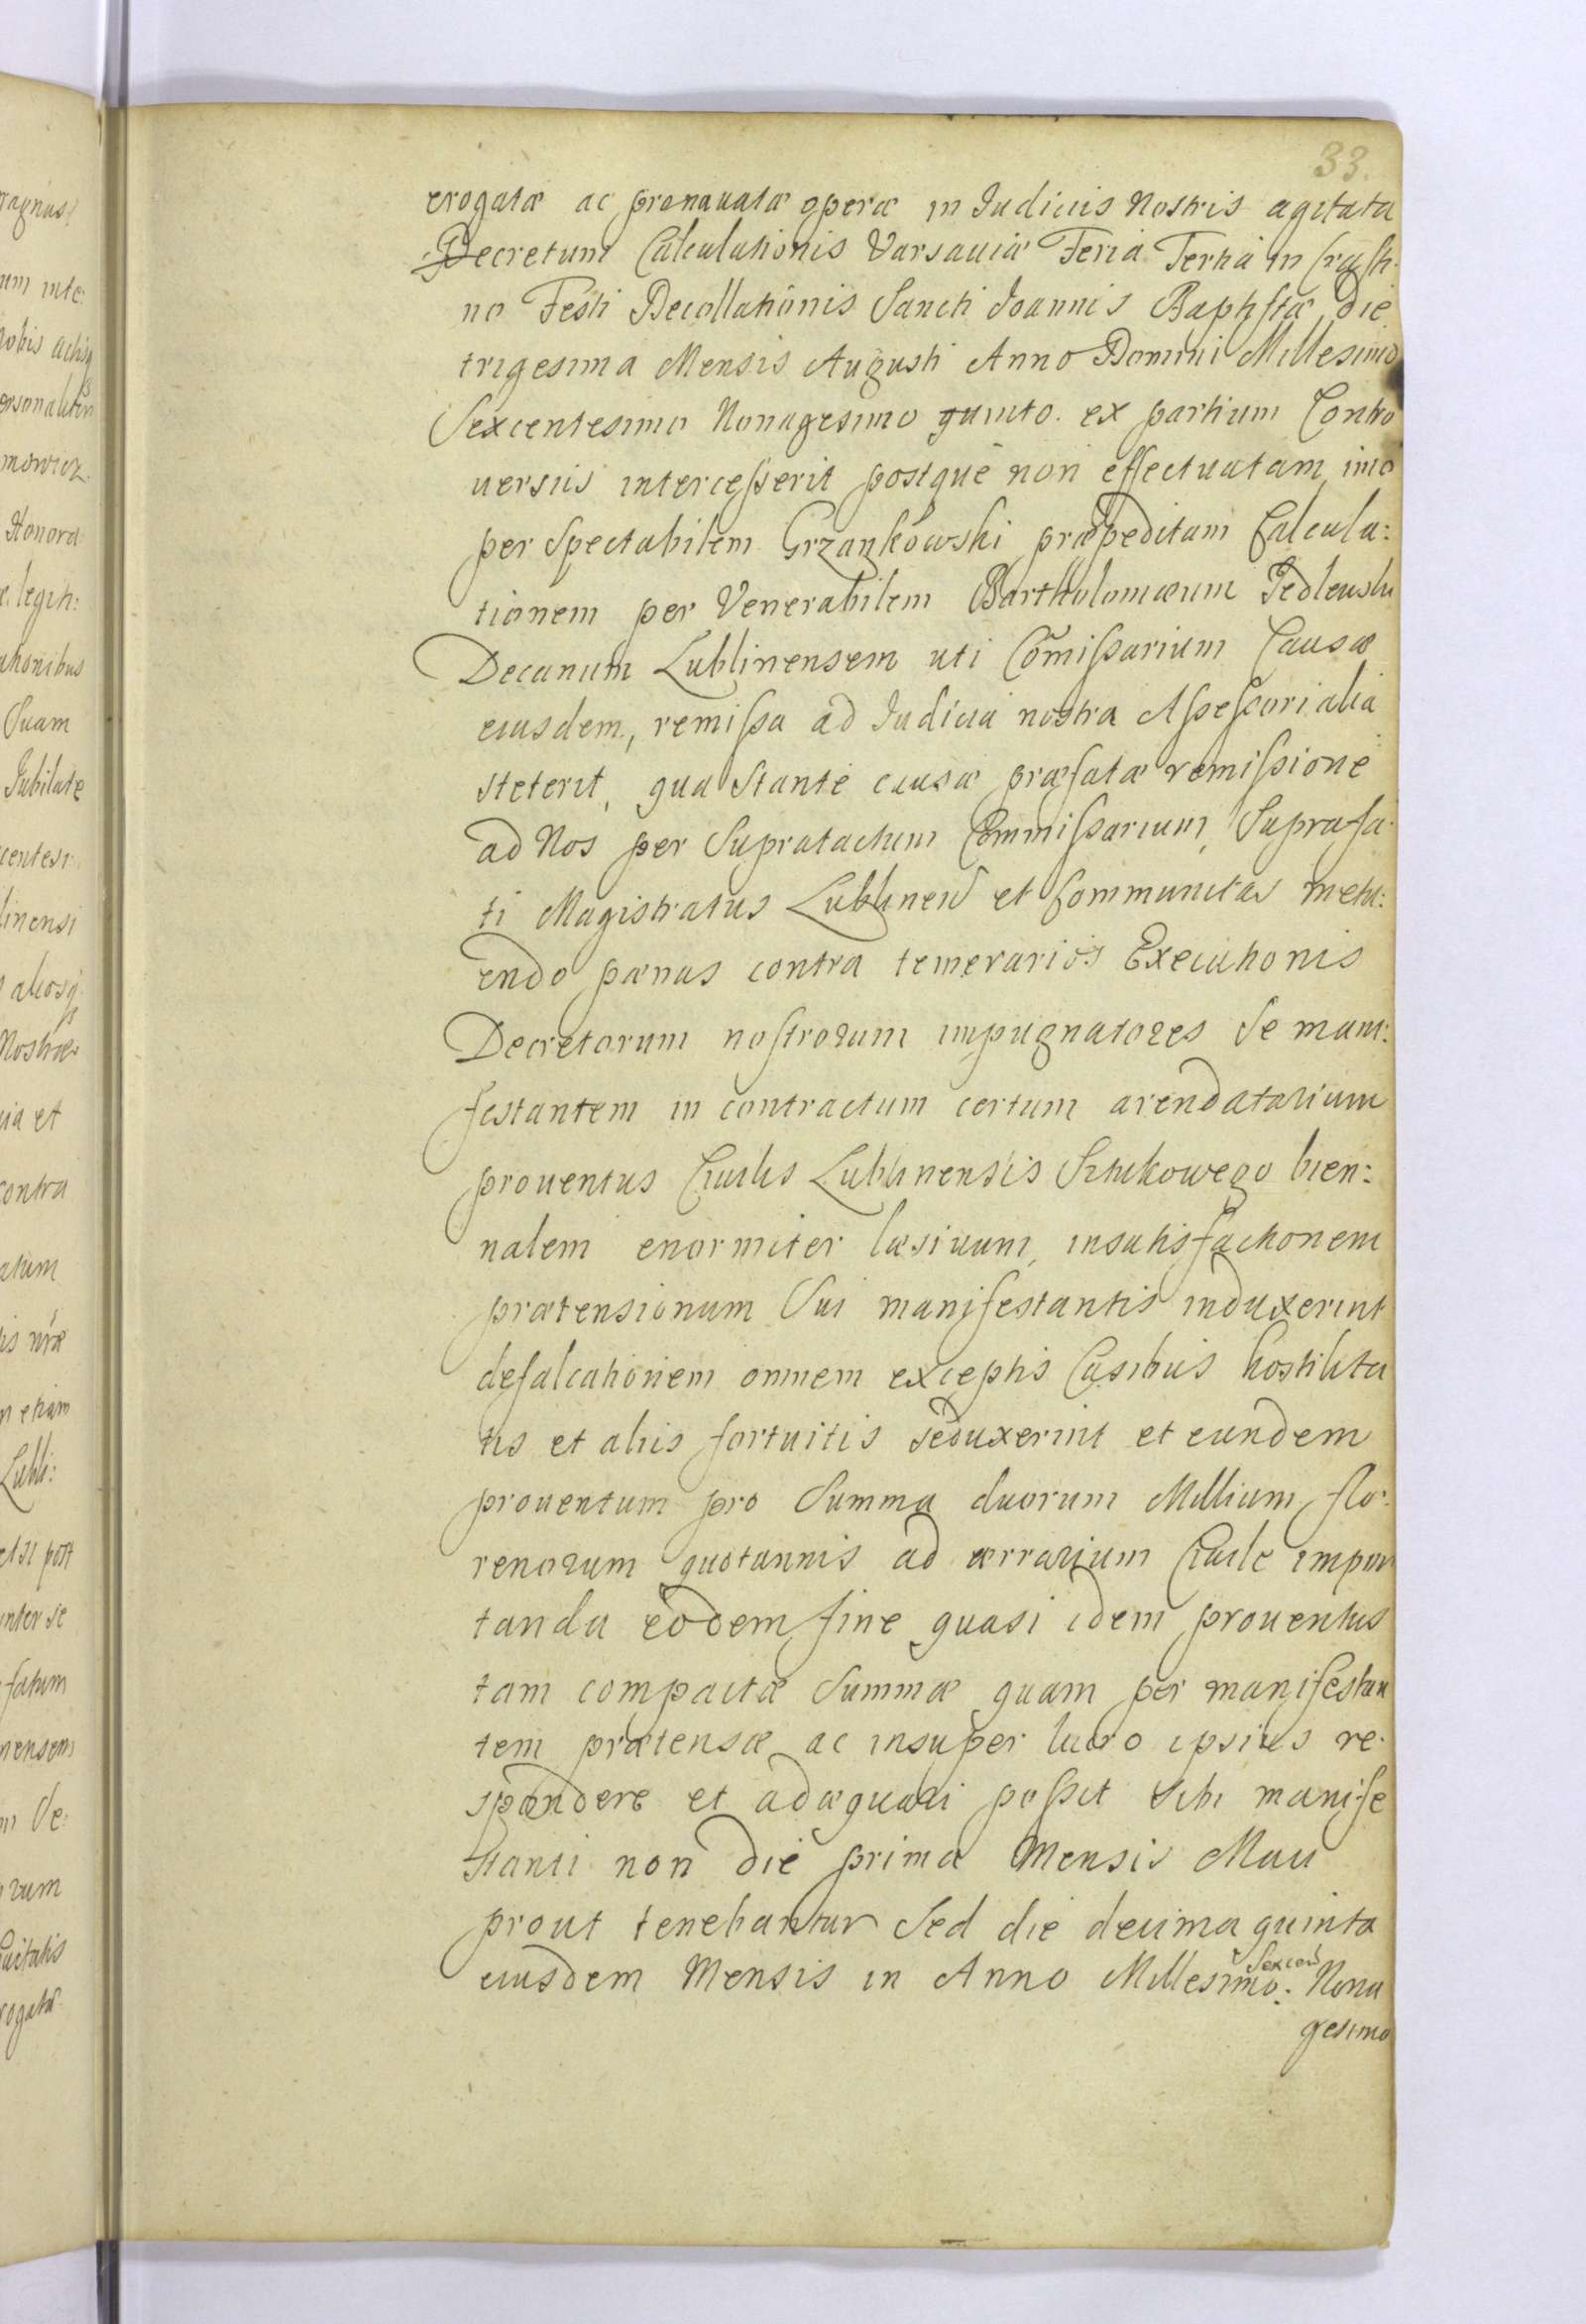 33.
erogatæ ac pronauatæ operæ in Iudicijs Nostris agitata
Decretum Calculationis Varsauiæ Feria Tertia in Crasti-
no Festi Decollationis Sancti Ioannis Baptistæ, die
trigesima Mensis Augusti Anno Domini Millesimo
Sexcentesimo Nonagesimo quinto. ex partium Contro
uersiis intercesserit postque non effectuatam, imo
per Spectabilem Grzankowski præpeditam Calcula:
tionem per Venerabilem Bartholomæum Jedlenski
Decanum Lublinensem uti Com̃issarium Causæ
eiusdem, remissa ad Iudicia nostra Assessorialia
steterit, qua Stante causæ præfatæ remissione
ad Nos per Supratactum Commissarium, Suprafa-
ti Magistratus Lublinen et Communitas metu:
endo pænas contra temerarios Executionis
Decretorum nostrorum impugnatores Se mani:
festantem in contractum certum arendatarium
prouentus Ciuilis Lublinensis Sztukowego bien:
nalem enormiter læsiuum, insatisfactionem
prætensionum Sui manifestantis induxerint
defalcationem omnem exceptis Casibus hostilita
tis et aliis fortuitis seduxerint et eundem
prouentum pro Summa duorum Millium flo-
renorum quotannis ad ærrarium Ciuile impor
tanda eodem fine quasi idem prouentus
tam compactæ Summæ quam per manifestan
tem prætensæ ac insuper lucro ipsius re-
spondere et adæquari possit Sibi manife
stanti non die prima Mensis Maii
prout tenebantur Sed die decima quinta
eiusdem Mensis in Anno Millesimo: Sexcen Nona
gesimo